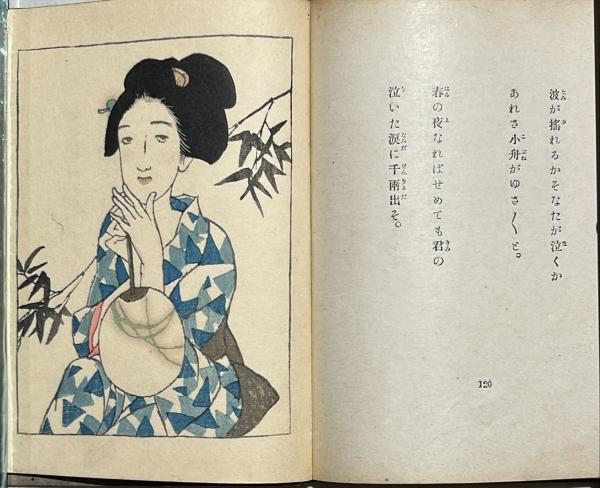 波が搖れるかそなたが泣くか
あれさ小舟がゆさ〳〵と。
春の夜なればせめても君の
泣いた涙に千兩出そ。
120